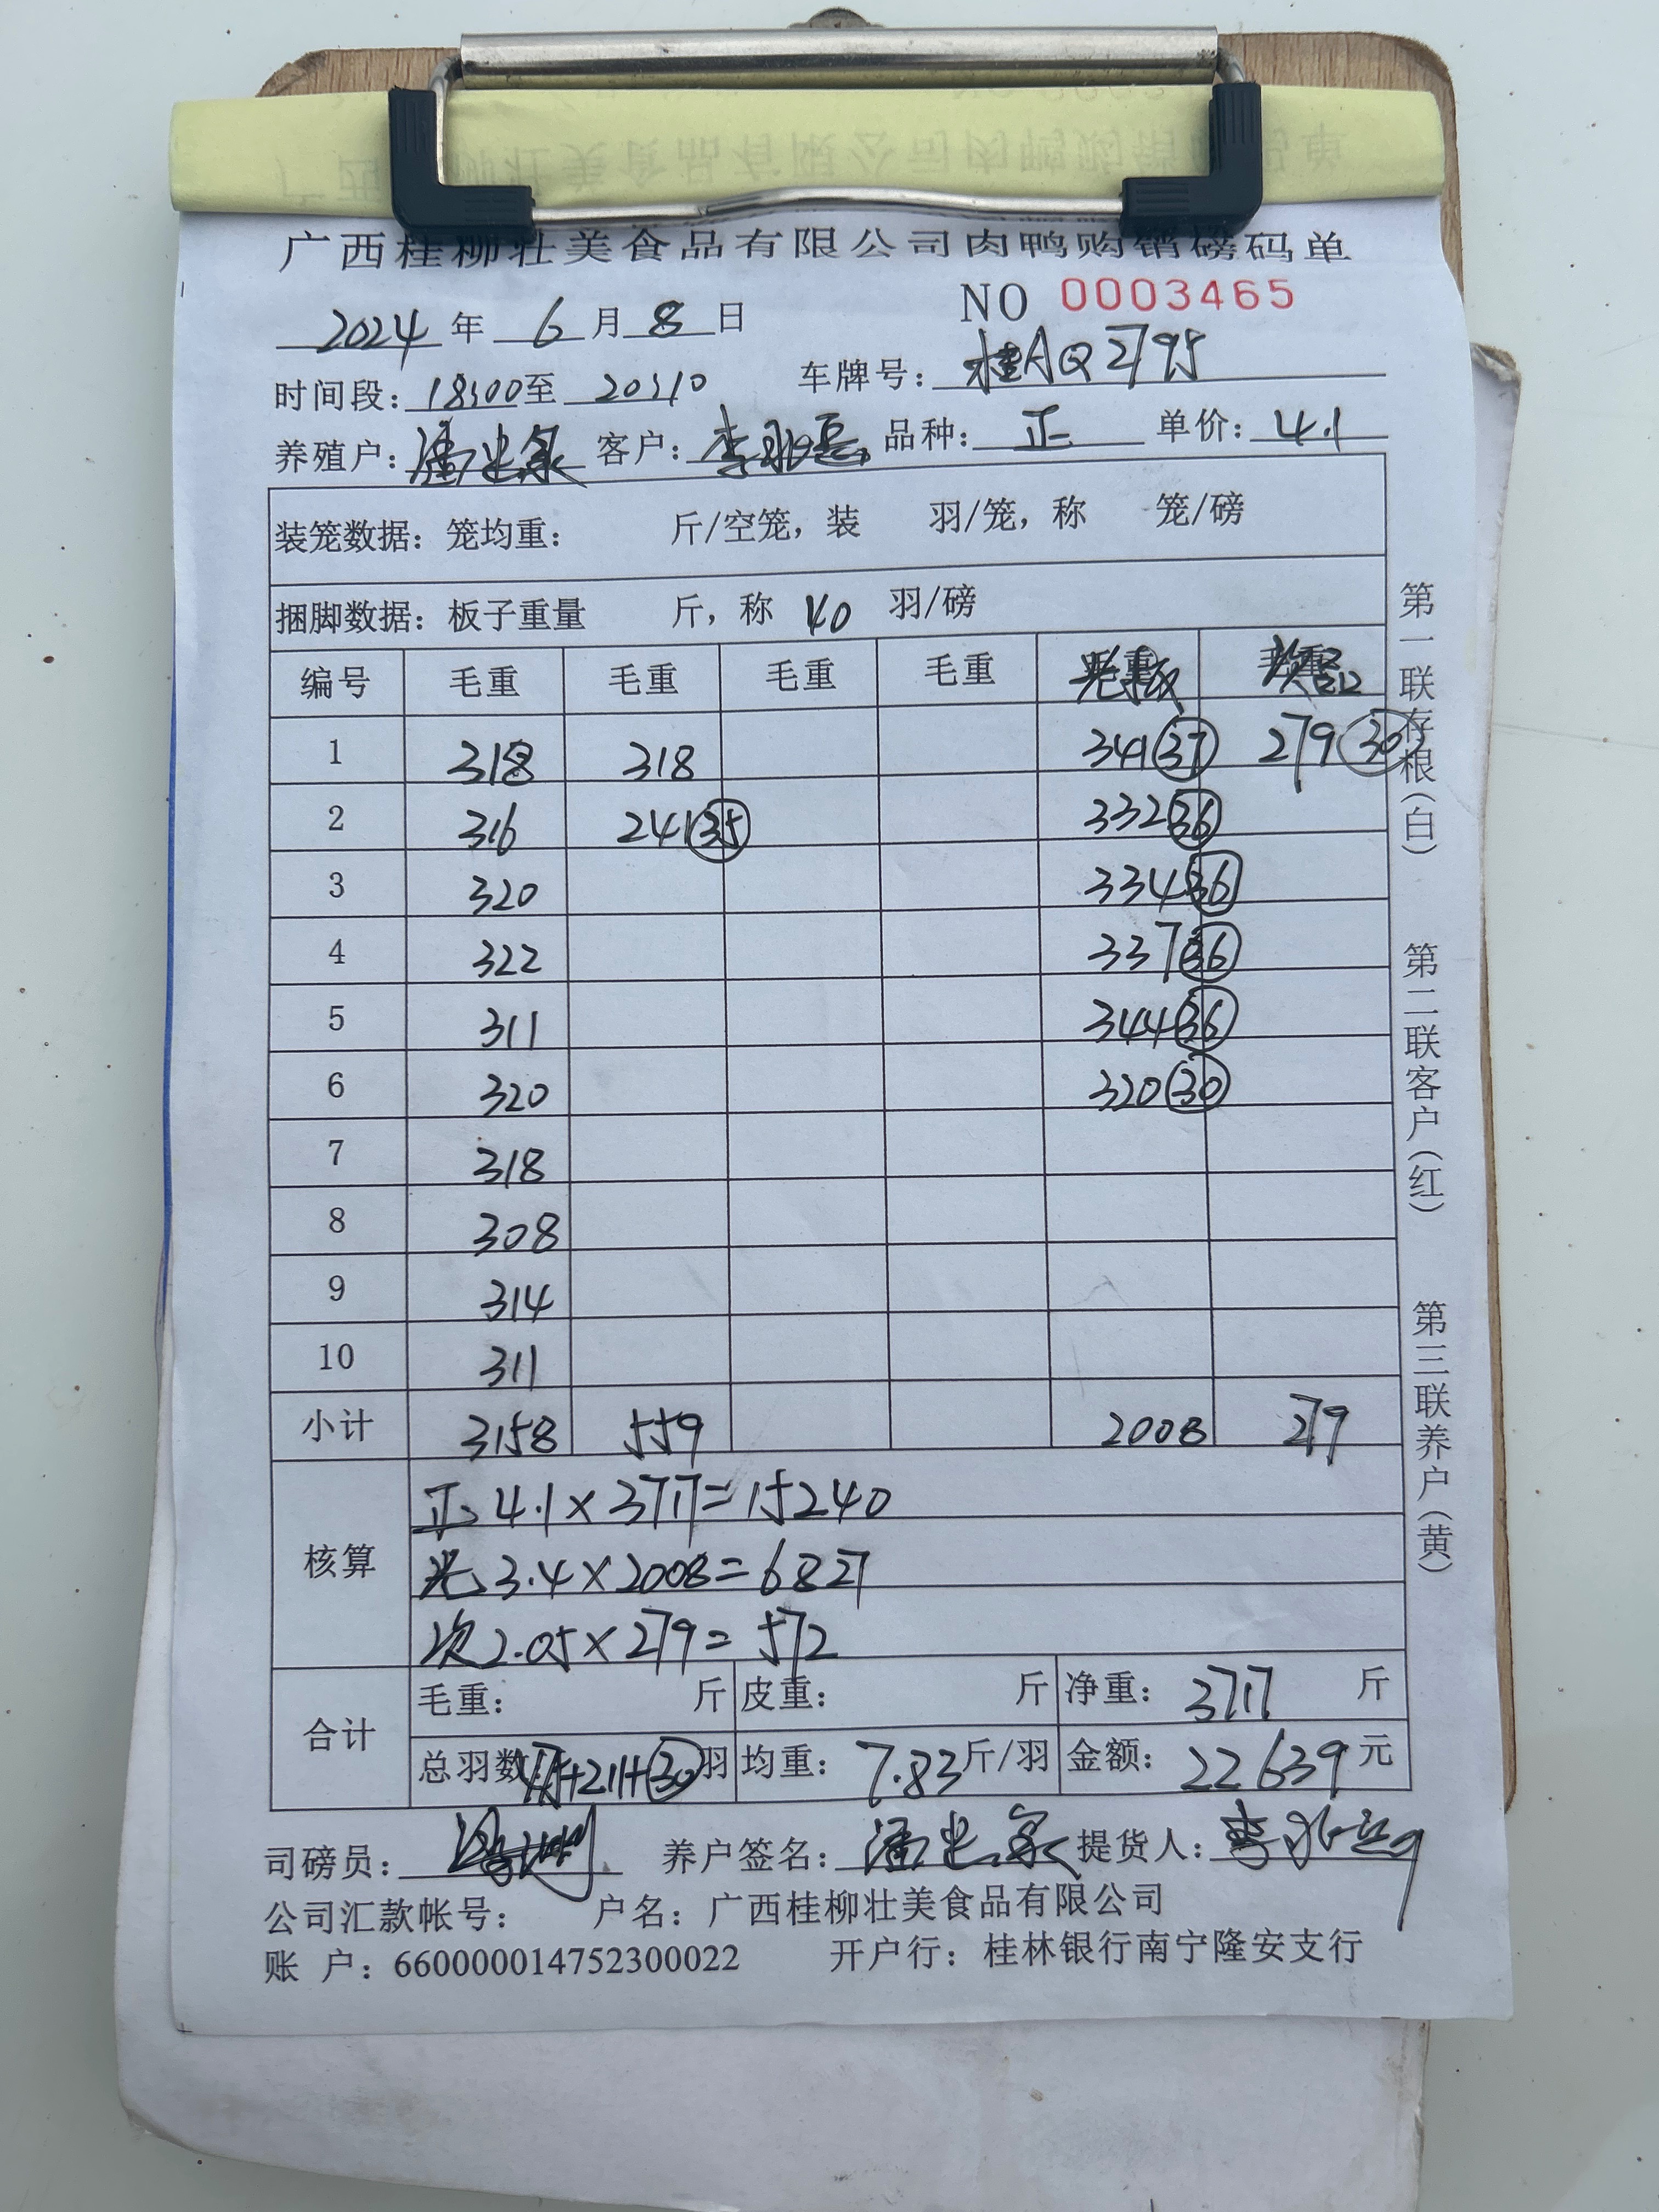 广西桂柳壮美食品有限公司肉鸭购销磅码单
NO 0003465
2024 年 6 月 8 日
时间段: 18:00 至 20:10 车牌号: 桂AQ2795
养殖户: 客户: 品种: 正 单价: 4.1
装笼数据: 笼均重: 斤/空笼, 装 羽/笼, 称 笼/磅
捆脚数据: 板子重量 斤, 称 40 羽/磅
编号 毛重 毛重 毛重 毛重
1 318 318 341 37 279 30
2 316 241 35 332 36
3 320 334 36
4 322 337 36
5 311 344 36
6 320 320 30
7 318
8 308
9 314
10 311
小计 3158 559 2008 279
核算
正 4.1×3717=15240
光 3.4×2008=6827
次 2.05×279=572
合计
毛重: 斤 皮重: 斤 净重: 3717 斤
总羽数: +211+30 羽 均重: 7.83 斤/羽 金额: 22639 元
司磅员: 养户签名: 提货人:
公司汇款帐号: 户名: 广西桂柳壮美食品有限公司
账 户: 660000014752300022 开户行: 桂林银行南宁隆安支行
第一联存根(白)
第二联客户(红)
第三联养户(黄)